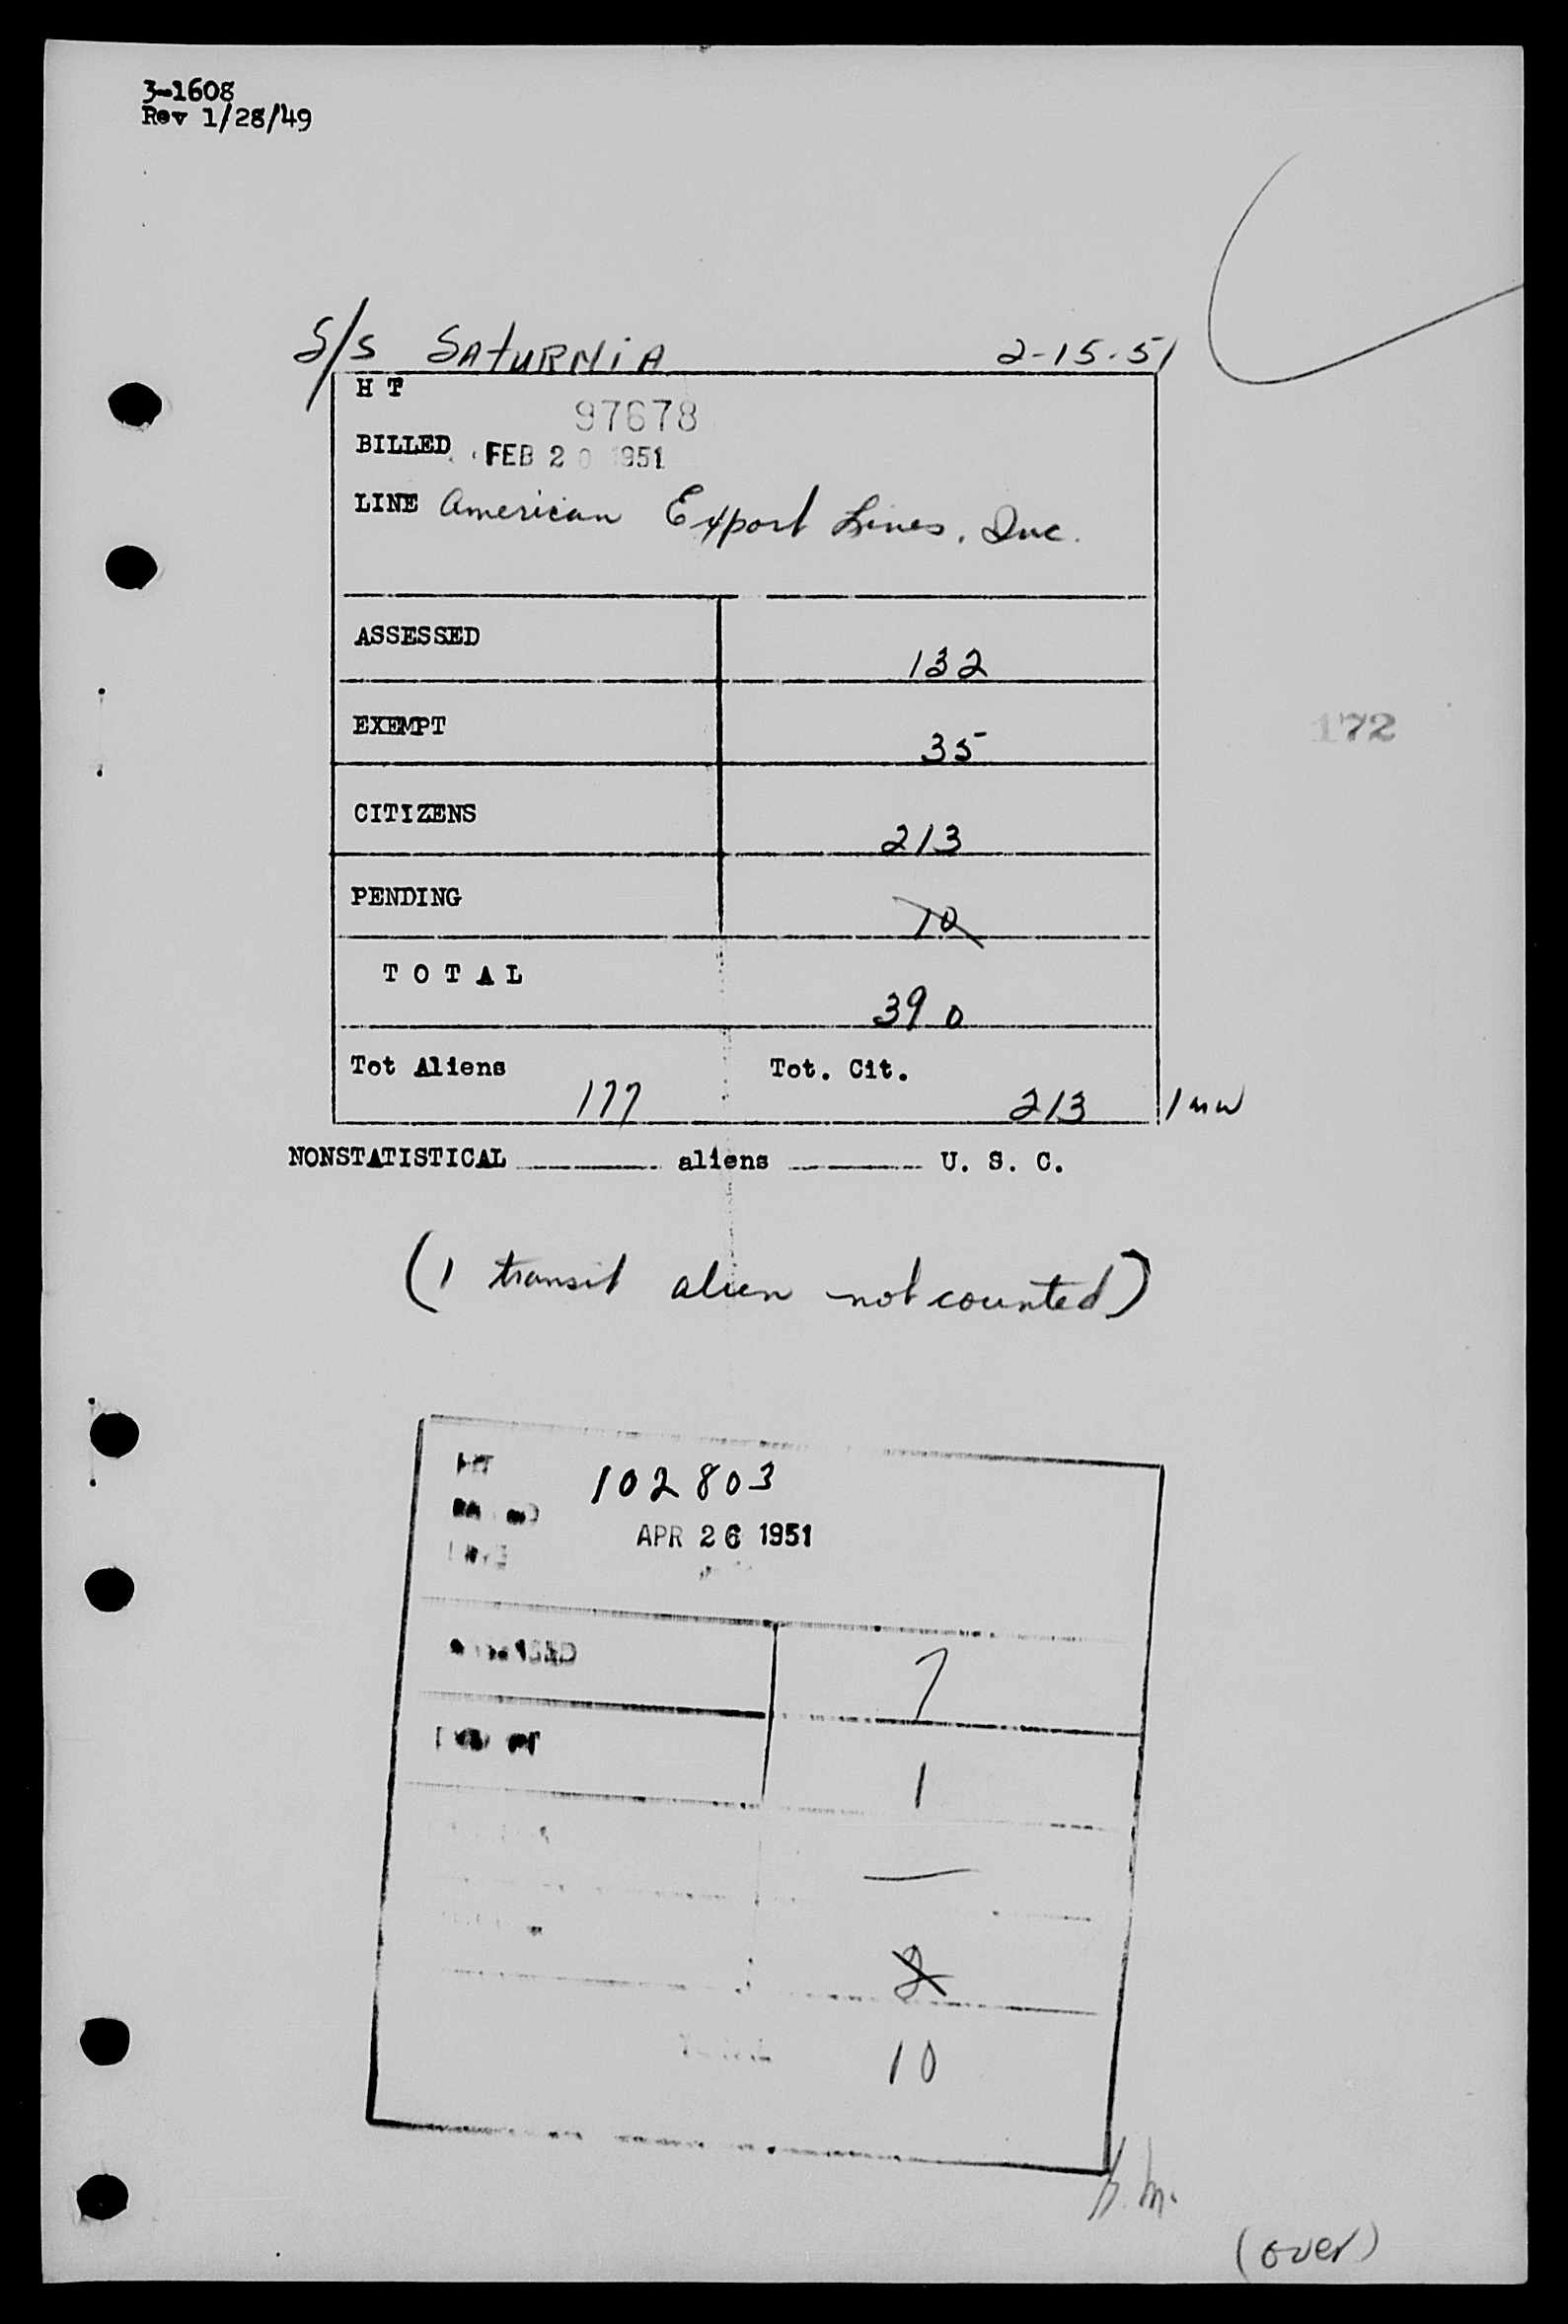 3-1608
Rev 1/28/49
S/S SATURNIA 2-15-51
H T 97678
BILLED FEB 20 1951
LINE American Export Lines, Inc.
ASSESSED 132
EXEMPT 35
172
CITIZENS 213
PENDING 10
T O T A L 390
Tot Aliens 177 Tot. Cit. 213
NONSTATISTICAL aliens U. S. C.
(1 transit alien not counted)
HT 102803
APR 26 1951
7
1
—
2
10
(over)